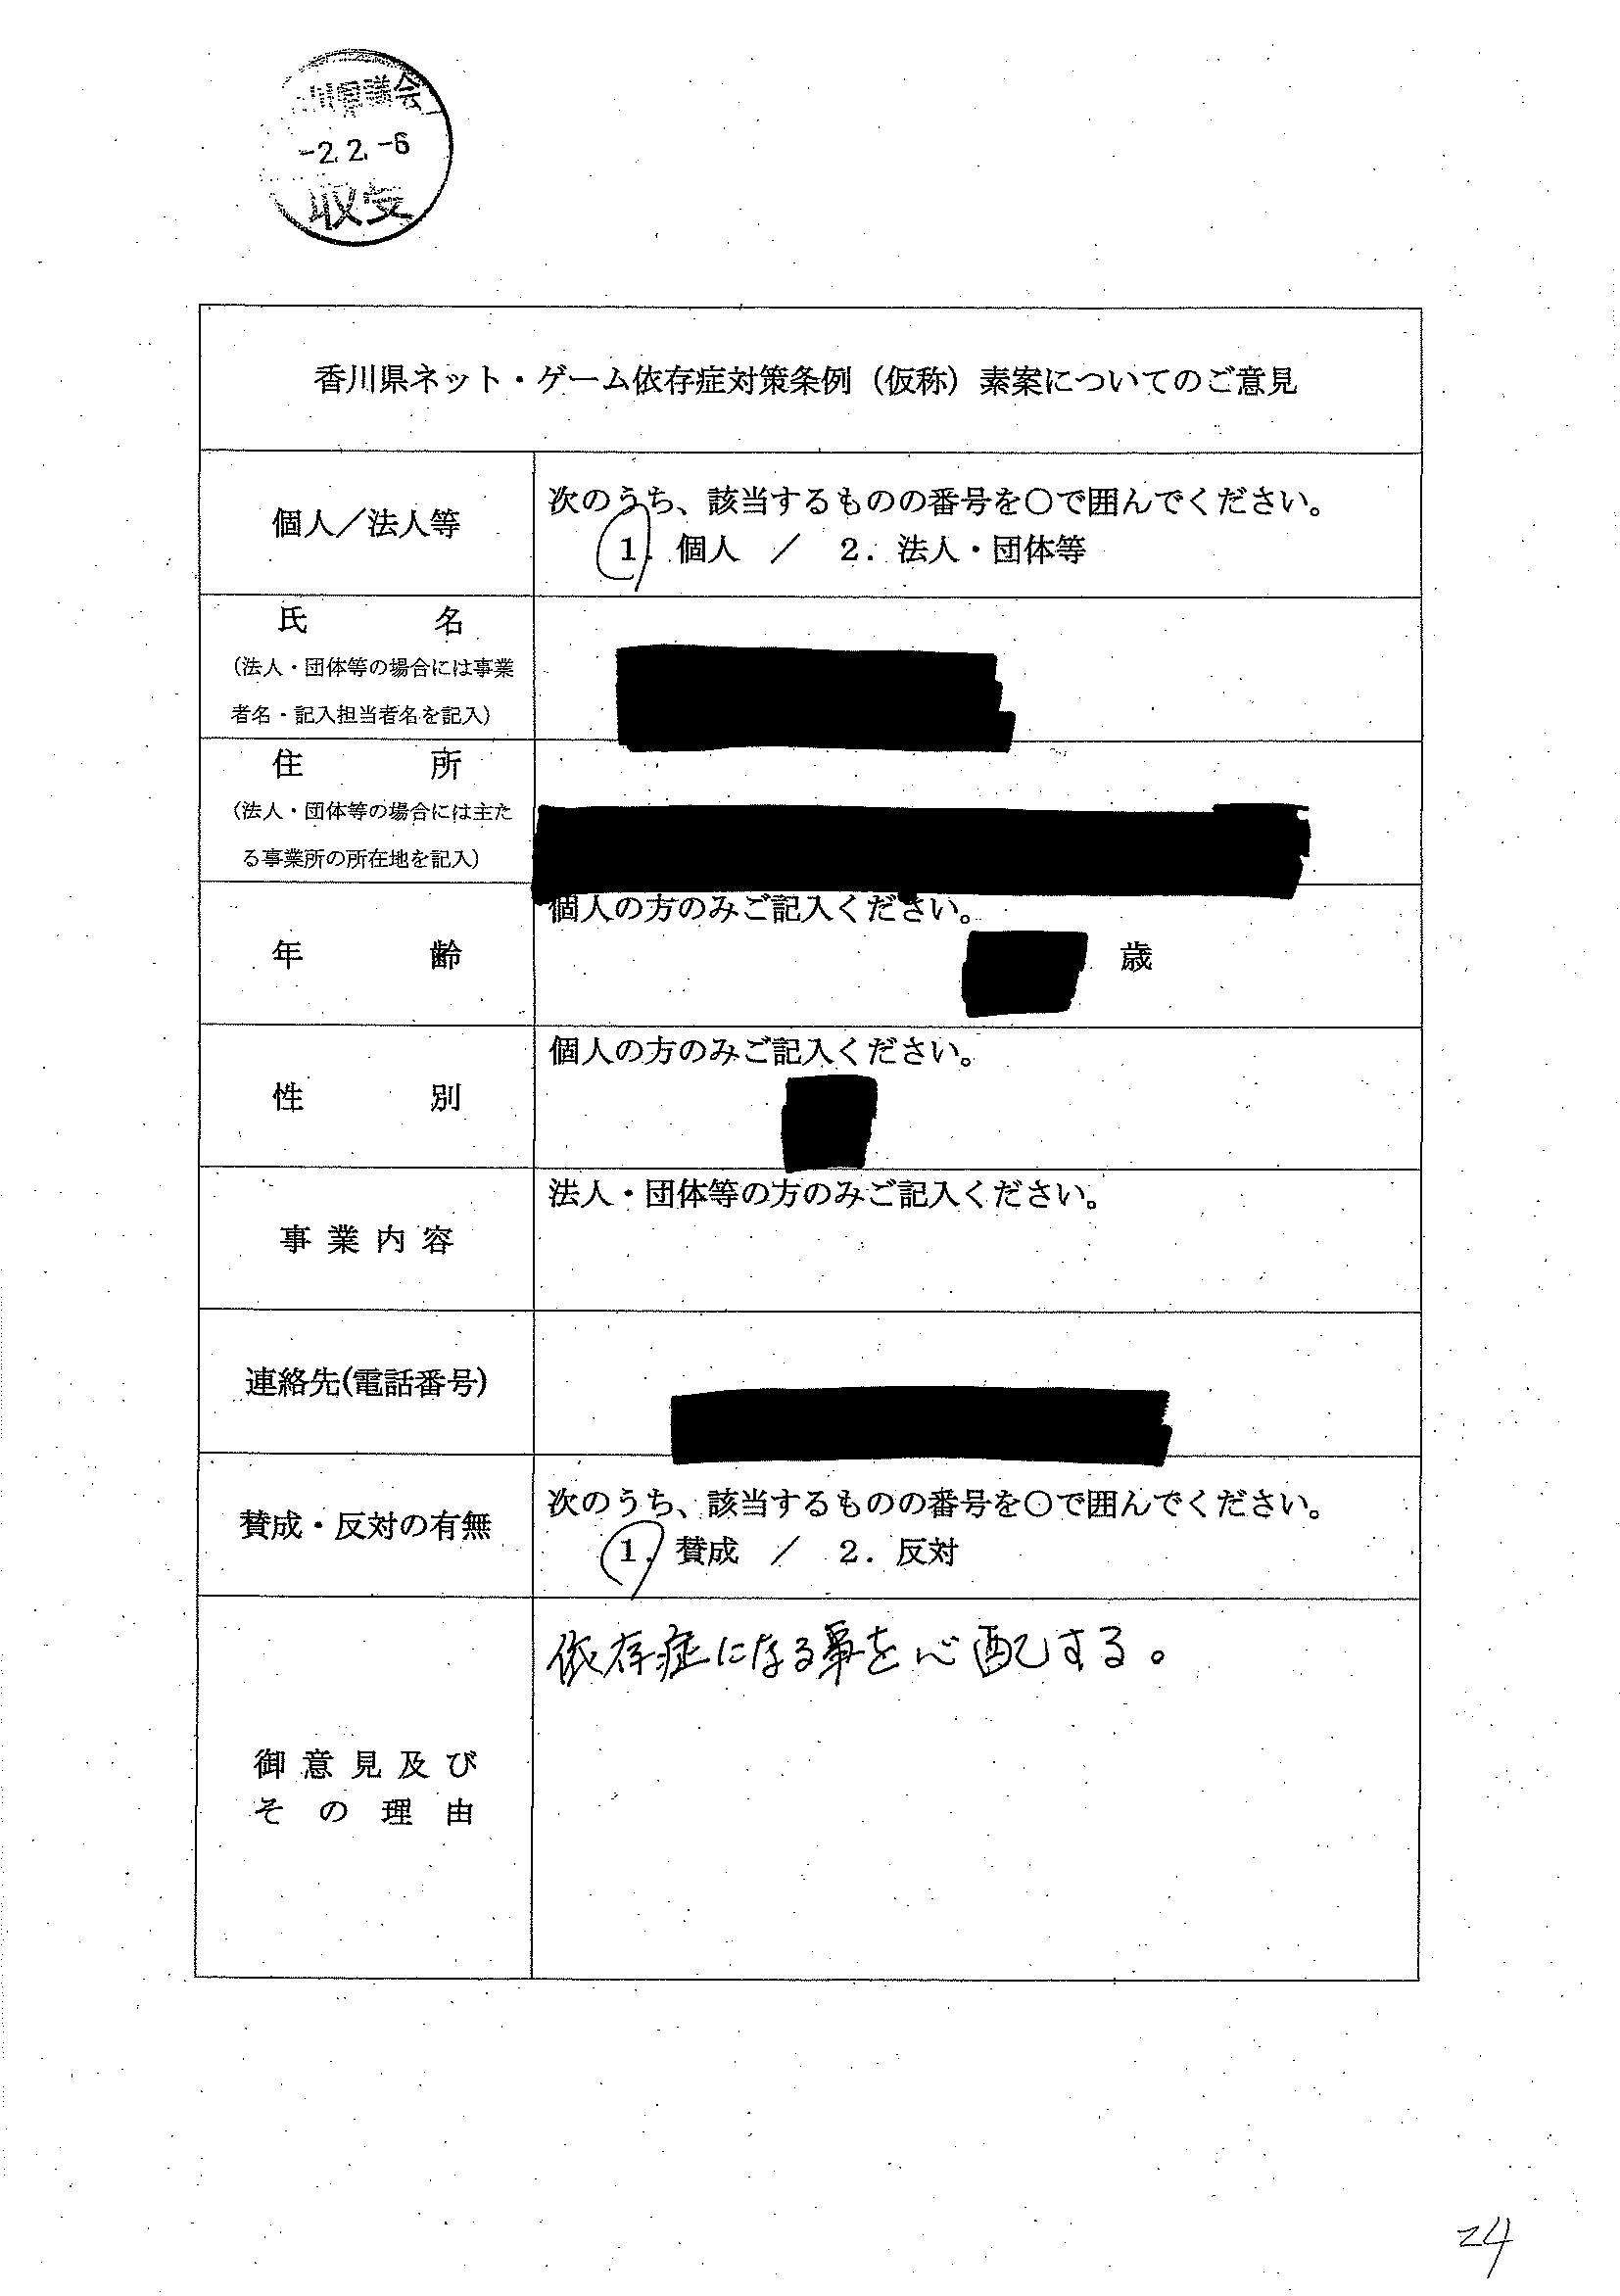 川県議会
-2.2.-6
収受
香川県ネット・ゲーム依存症対策条例（仮称）素案についてのご意見
個人／法人等
次のうち、該当するものの番号を○で囲んでください。
1．個人　／　2．法人・団体等
氏　名
（法人・団体等の場合には事業
者名・記入担当者名を記入）
住　所
（法人・団体等の場合には主た
る事業所の所在地を記入）
年　齢
個人の方のみご記入ください。
歳
性　別
個人の方のみご記入ください。
事業内容
法人・団体等の方のみご記入ください。
連絡先(電話番号)
賛成・反対の有無
次のうち、該当するものの番号を○で囲んでください。
1．賛成　／　2．反対
御意見及び
その理由
依存症になる事を心配する。
24